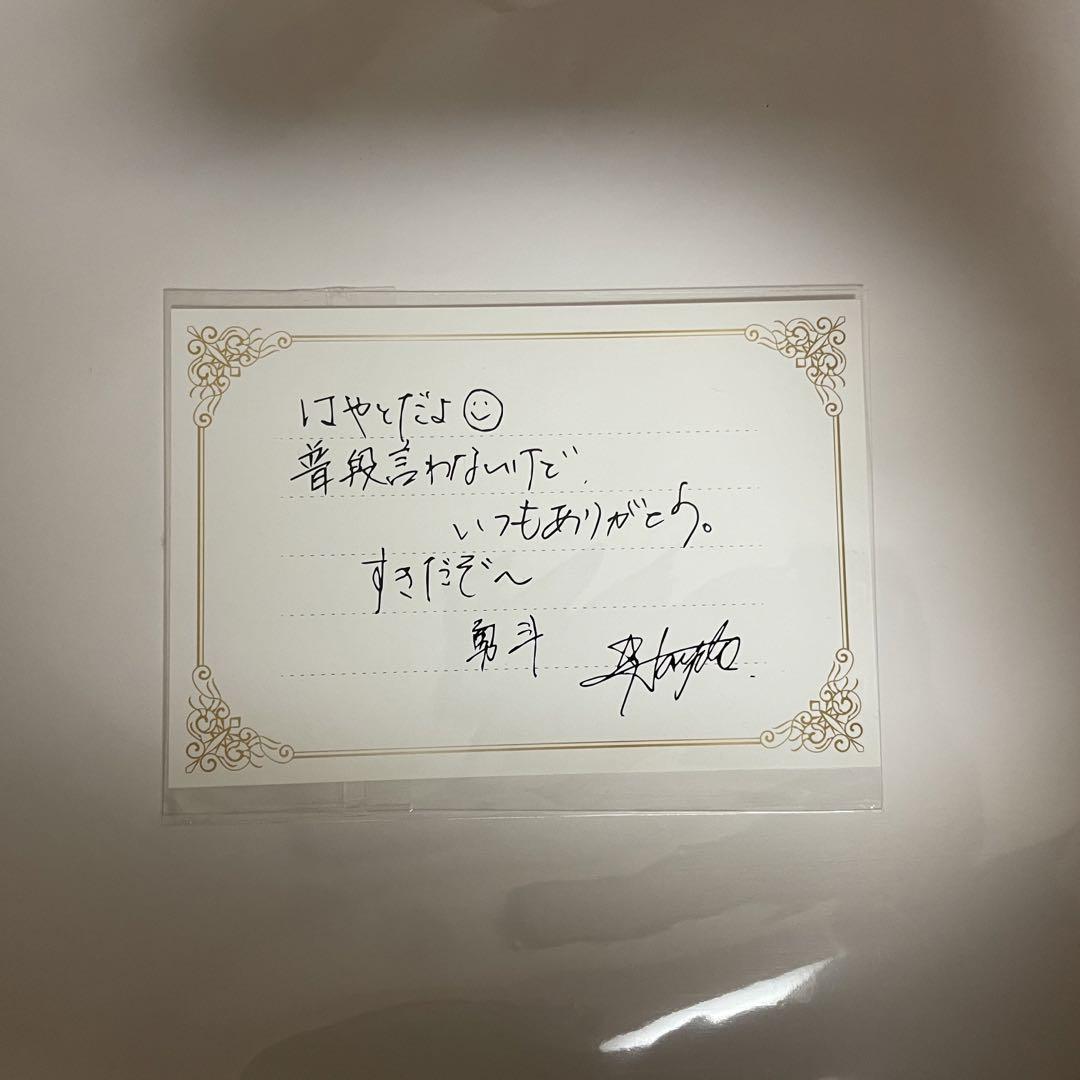 はやとだよ☺
普段言わないけど、
いつもありがとう。
すきだぞ〜
勇斗 Hayato